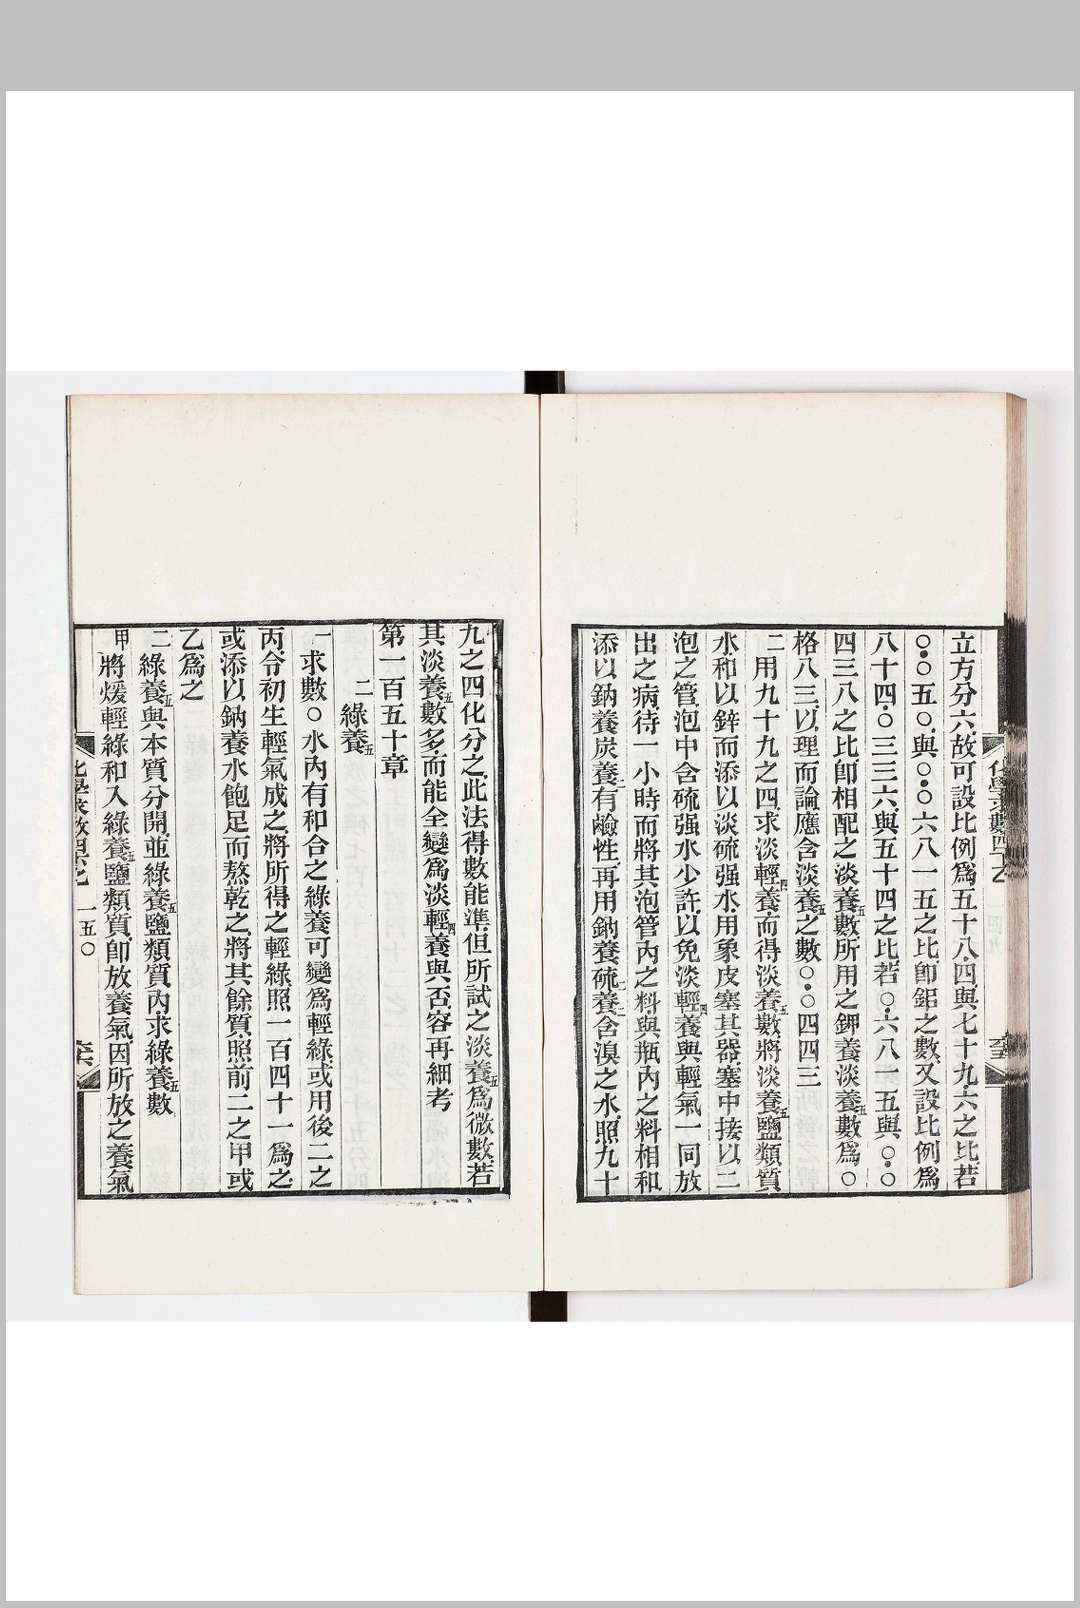 立方分六故可設比例爲五十八四與七十九六之比若
〇·〇五〇與〇·〇六八一五之比卽鋁之數又設比例爲
八十四〇三三六與五十四之比若〇六八一五與〇·〇
四三八之比卽相配之淡養五數所用之鉀養淡養五數爲〇
格八三以理而論應含淡養五之數〇·〇四四三
二用九十九之四求淡輕四養而得淡養五數將淡養五鹽類質
水和以鋅而添以淡硫强水用象皮塞其器塞中接以二
泡之管泡中含硫强水少許以免淡輕四養與輕氣一同放
出之病待一小時而將其泡管內之料與瓶內之料相和
添以鈉養炭養二有鹼性再用鈉養硫養二含溴之水照九十
化學求數四下乙
至
九之四化分之此法得數能準但所試之淡養五爲微數若
其淡養五數多而能全變爲淡輕四養與否容再細考
第一百五十章
二綠養五
一求數〇水內有和合之綠養可變爲輕綠或用後二之
丙令初生輕氣成之將所得之輕綠照一百四十一爲之
或添以鈉養水飽足而熬乾之將其餘質照前二之甲或
乙爲之
二綠養五與本質分開並綠養五鹽類質內求綠養五數
甲將煖輕綠和入綠養五鹽類質卽放養氣因所放之養氣
化學求數四
一五〇